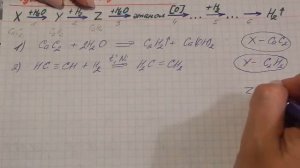 X +H₂O→ Y +H₂→ Z +H₂O→ этанол [O]→ ... +H₂→ ... → H₂↑
1 2 3 4 5 6
1) CaC₂ + 2H₂O ⟹ C₂H₂↑ + Ca(OH)₂
X – CaC₂
2) HC≡CH + H₂ t,Ni⟹ H₂C=CH₂
Y – C₂H₂
Z